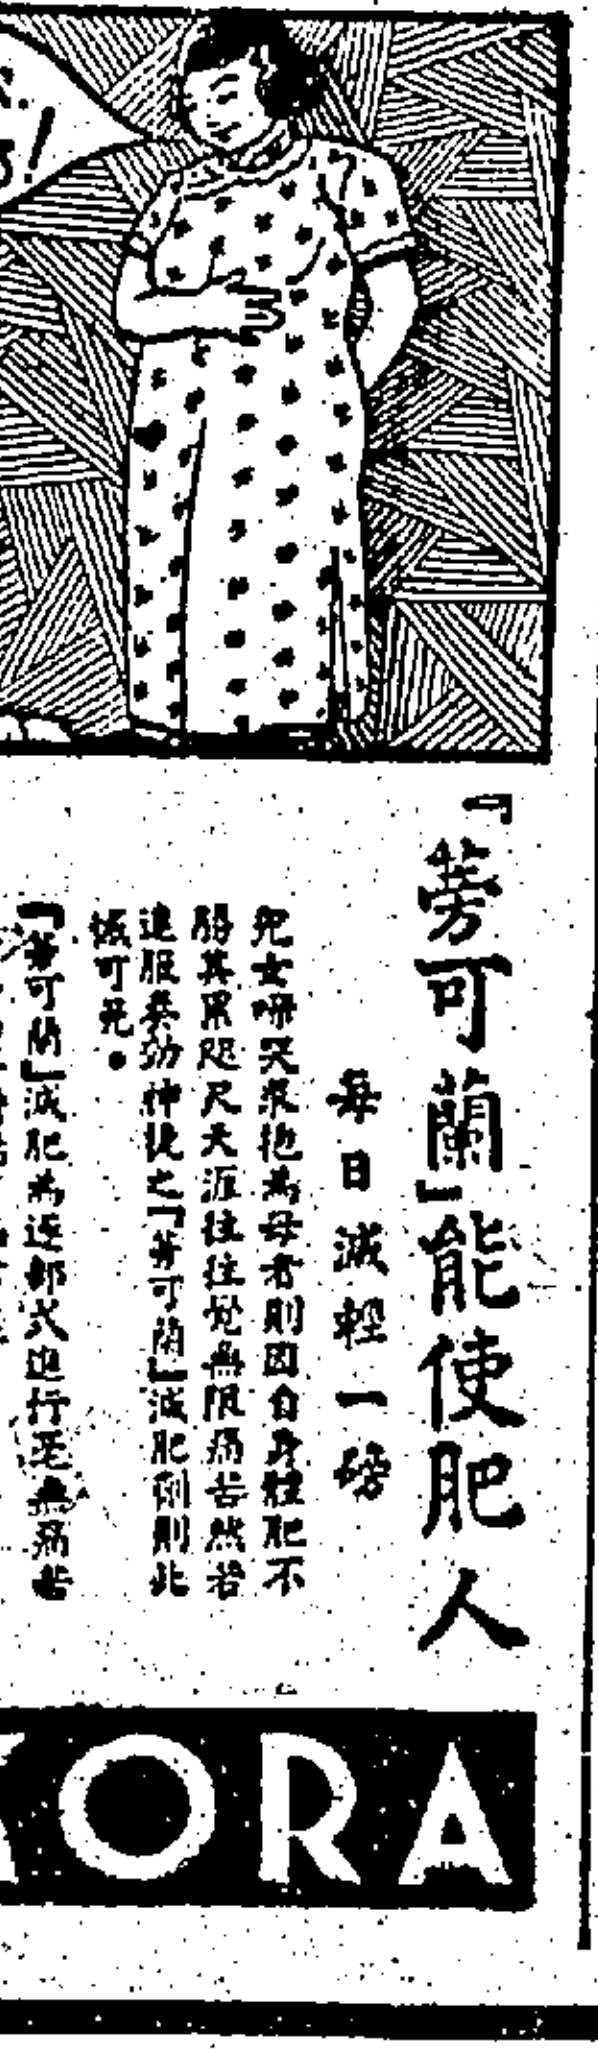 『蒡可蘭』能使肥人
每日減輕一磅
兒女啼哭求抱為母者則因自身體肥不
勝其累咫尺天涯往往覺無限痛苦然若
速服奏効神捷之『蒡可蘭』減肥劑則此
憾可免●
『蒡可蘭』減肥為逐部式進行至無痛苦
ORA